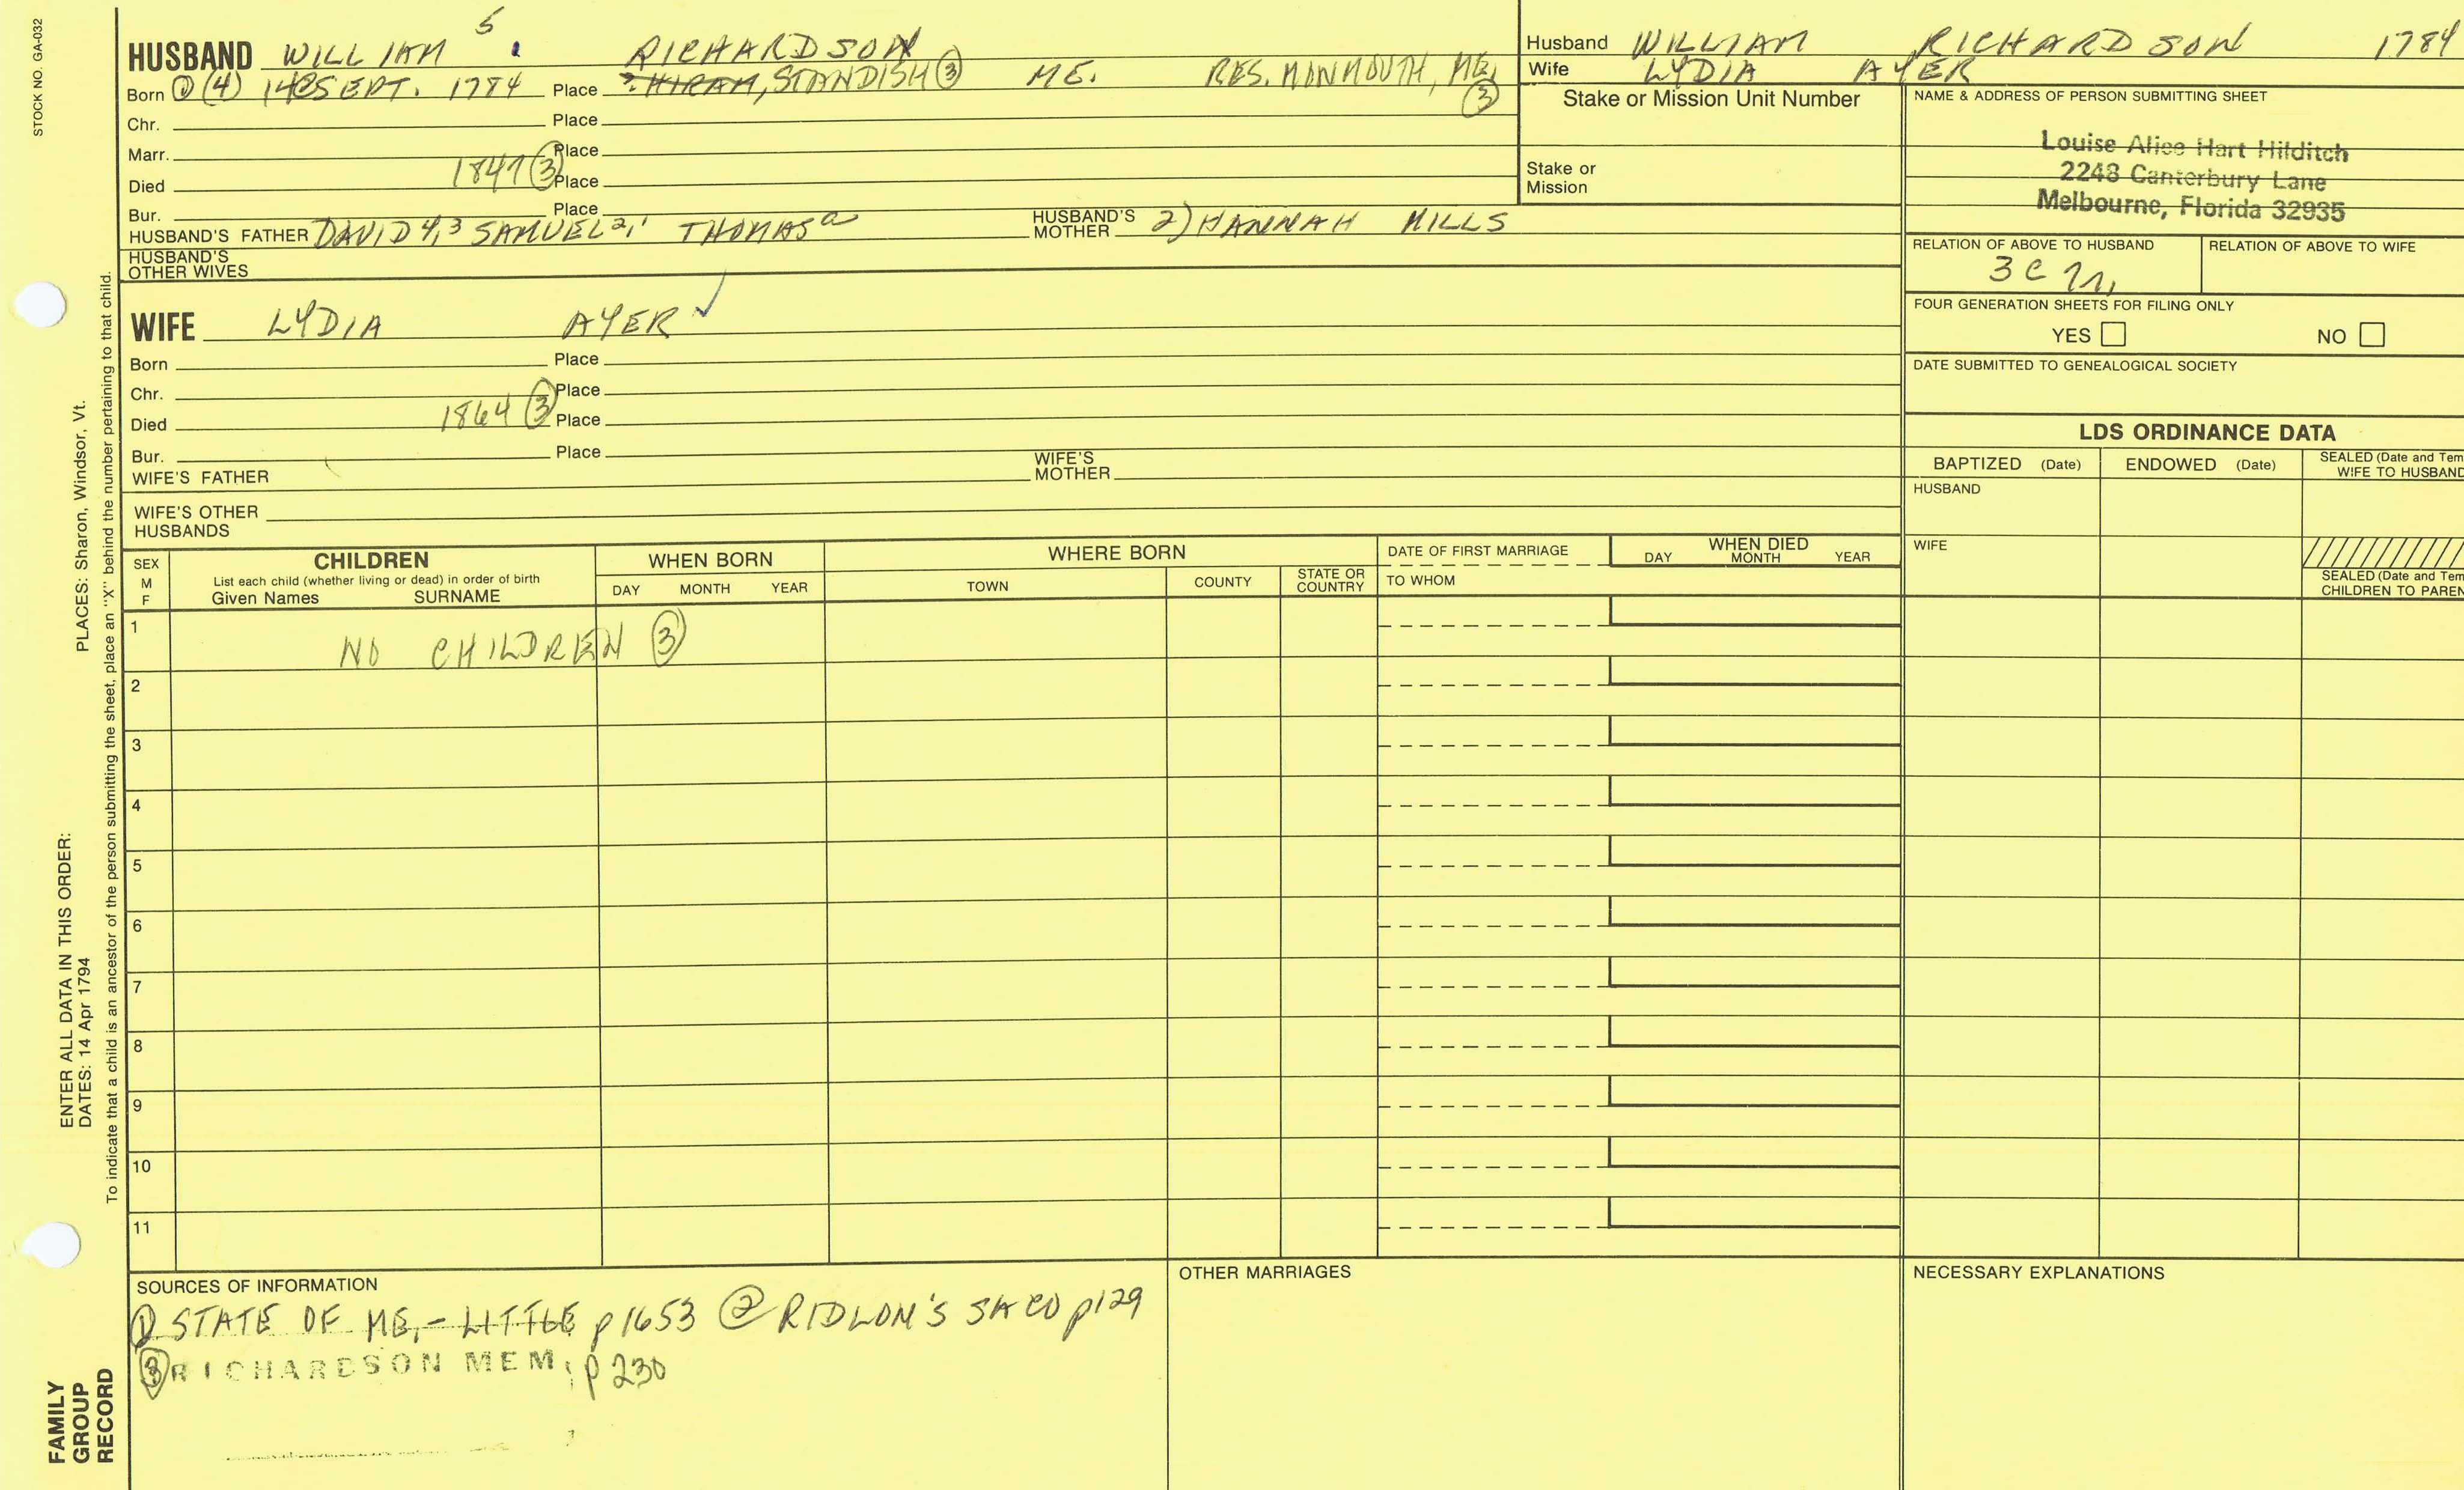 STOCK NO. GA-032
HUSBAND WILLIAM 5. RICHARDSON
Born ① (4) SEPT. 1784 Place ? HIRAM, STANDISH ③ ME. RES. MONMOUTH, ME. ③
Chr. Place
Marr. Place
Died 1847 ③ Place
Bur. Place
HUSBAND'S FATHER DAVID 4,3 SAMUEL 2,1 THOMAS a HUSBAND'S MOTHER 2) HANNAH MILLS
HUSBAND'S OTHER WIVES
WIFE LYDIA AYER ✓
Born Place
Chr. Place
Died 1864 ③ Place
Bur. Place
WIFE'S FATHER WIFE'S MOTHER
WIFE'S OTHER HUSBANDS
Husband WILLIAM RICHARDSON 1784
Wife LYDIA AYER
Stake or Mission Unit Number
Stake or Mission
NAME & ADDRESS OF PERSON SUBMITTING SHEET
Louise Alice Hart Hilditch
2248 Canterbury Lane
Melbourne, Florida 32935
RELATION OF ABOVE TO HUSBAND RELATION OF ABOVE TO WIFE
3 C
FOUR GENERATION SHEETS FOR FILING ONLY
YES NO
DATE SUBMITTED TO GENEALOGICAL SOCIETY
LDS ORDINANCE DATA
BAPTIZED (Date) ENDOWED (Date) SEALED (Date and Tem
WIFE TO HUSBAND
HUSBAND
WIFE
SEALED (Date and Tem
CHILDREN TO PAREN
SEX M F
CHILDREN
List each child (whether living or dead) in order of birth
Given Names SURNAME
WHEN BORN
DAY MONTH YEAR
WHERE BORN
TOWN COUNTY STATE OR COUNTRY
DATE OF FIRST MARRIAGE
TO WHOM
WHEN DIED
DAY MONTH YEAR
1 NO CHILDREN ③
2
3
4
5
6
7
8
9
10
11
SOURCES OF INFORMATION
① STATE OF ME,- LITTLE p 1653 ② RIDLON'S SACO p129
③ RICHARDSON MEM, p 230
OTHER MARRIAGES
NECESSARY EXPLANATIONS
FAMILY GROUP RECORD
ENTER ALL DATA IN THIS ORDER:
DATES: 14 Apr 1794 PLACES: Sharon, Windsor, Vt.
To indicate that a child is an ancestor of the person submitting the sheet, place an "X" behind the number pertaining to that child.